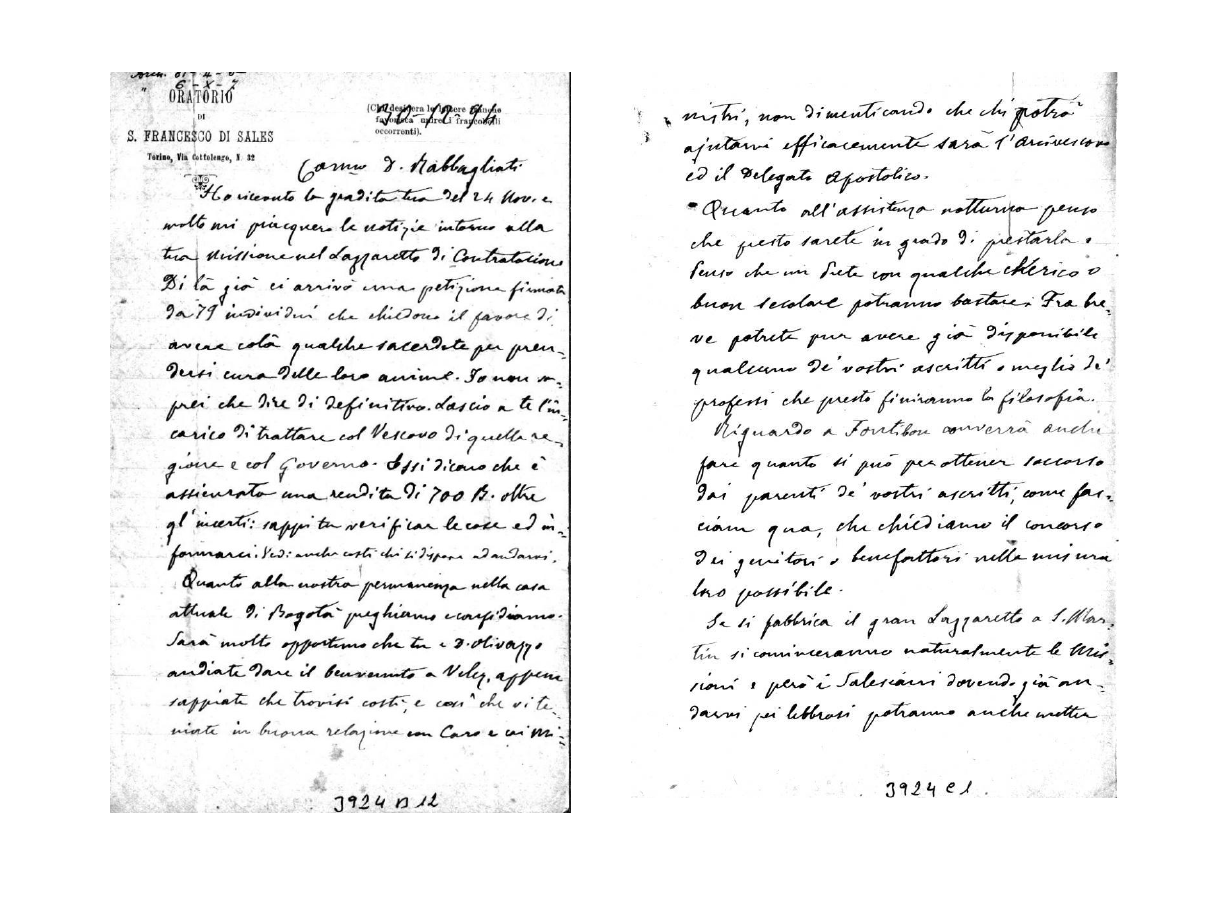 6-X-7
"
ORATORIO
DI
S. FRANCESCO DI SALES
Torino, Via Cottolengo, N. 32
(Chi desidera le lettere
occorrenti).
Carmo D. Rabbagliati
Ho ricevuto la gradita tua del 24 Nov. e
molto mi piacquero le notizie intorno alla
tua missione nel Lazzaretto di Contratacion
Di là già ci arrivò una petizione firmata
da 79 individui che chiedono il favore di
avere colà qualche sacerdote per pren-
dersi cura delle loro anime. Io non sa-
prei che dire di definitivo. Lascio a te l'in-
carico di trattare col Vescovo di quella re-
gione e col Governo. Essi dicono che è
assicurata una rendita di 700 B. oltre
gl'incerti: sappi tu verificar le cose ed in-
formarci. Vedi anche costì chi si dispone ad andarvi.
Quanto alla vostra permanenza nella casa
attuale di Bogotà preghiamo e confidiamo.
Sarà molto opportuno che tu e D. Olivazzo
andiate dare il benvenuto a Velez, appena
sappiate che trovisi costì, e così che vi te-
niate in buona relazione con Caro e coi Mi-
3924 B 12
nistri, non dimenticando che chi potrà
ajutarvi efficacemente sarà l'Arcivescovo
ed il Delegato Apostolico.
Quanto all'assistenza notturna penso
che presto sarete in grado di prestarla e
penso che un Prete con qualche chierico o
buon secolare potranno bastare. Fra bre-
ve potrete pur avere già disponibile
qualcuno de' vostri ascritti o meglio de'
professi che presto finiranno la filosofia.
Riguardo a Fontibon converrà anche
fare quanto si può per ottener soccorso
dai parenti de' vostri ascritti, come fac-
ciam qua, che chiediamo il concorso
dei genitori o benefattori nella misura
loro possibile.
Se si fabbrica il gran Lazzaretto a S. Mar-
tin si cominceranno naturalmente le Mis-
sioni e però i Salesiani dovendo già an-
darvi pei lebbrosi potranno anche metter
3924 C 1